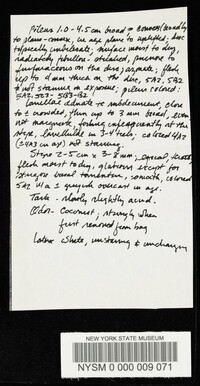 Pileus 1.0 - 4.5 cm broad, convex, broadly
to plano-convex, in age plane to uplifted, disc
typically umbonate; surface moist to dry,
radially fibrillose-striated,
on the disc; aspect; flesh
up to 4 mm thick on the disc, 5A2, 5B2
& not staining on exposure; pileus colored:
5A2-5C3 - 5B3-B2
Lamellae adnate to subdecurrent, close
to ± crowded, thin, up to 3 mm broad, even
not marginate, forking infrequently at the
stipe, lamellulae in 3-4 tiers, colored 4A2
(±4A3 in age) not staining.
Stipe 2-5 cm x 3-8 mm, equal,
flesh moist to dry, glabrous except for
base tomentum, smooth, colored
5A2 4/a ± grayish overcast in age.
Taste - slowly slightly acrid.
Odor - Coconut, strongly when
first removed from bag
Latex white, unstaining & unchanging
NEW YORK STATE MUSEUM
NYSM 0 000 009 071